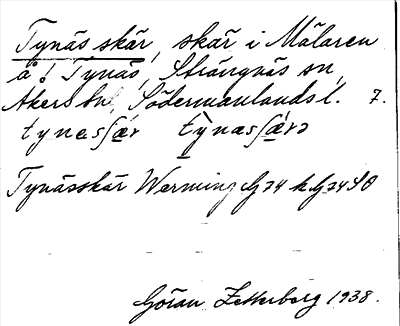 Tynäs skär, skär i Mälaren
å t Tynäs, Strängnäs sn,
Åkers hd, Södermanlands l. 7.
tynesʃæ̱r tỳ̱nasʃæ̱rə
Tynässkär Werming G 34 h G 34 SO
Göran Zetterberg 1938.